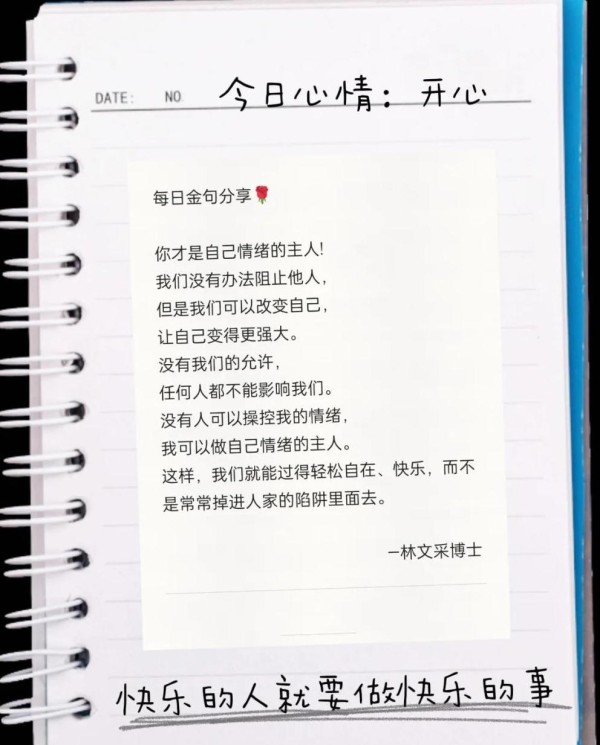 DATE: NO 今日心情：开心
每日金句分享🌹
你才是自己情绪的主人!
我们没有办法阻止他人，
但是我们可以改变自己，
让自己变得更强大。
没有我们的允许，
任何人都不能影响我们。
没有人可以操控我的情绪，
我可以做自己情绪的主人。
这样，我们就能过得轻松自在、快乐，而不
是常常掉进人家的陷阱里面去。
–林文采博士
快乐的人就要做快乐的事